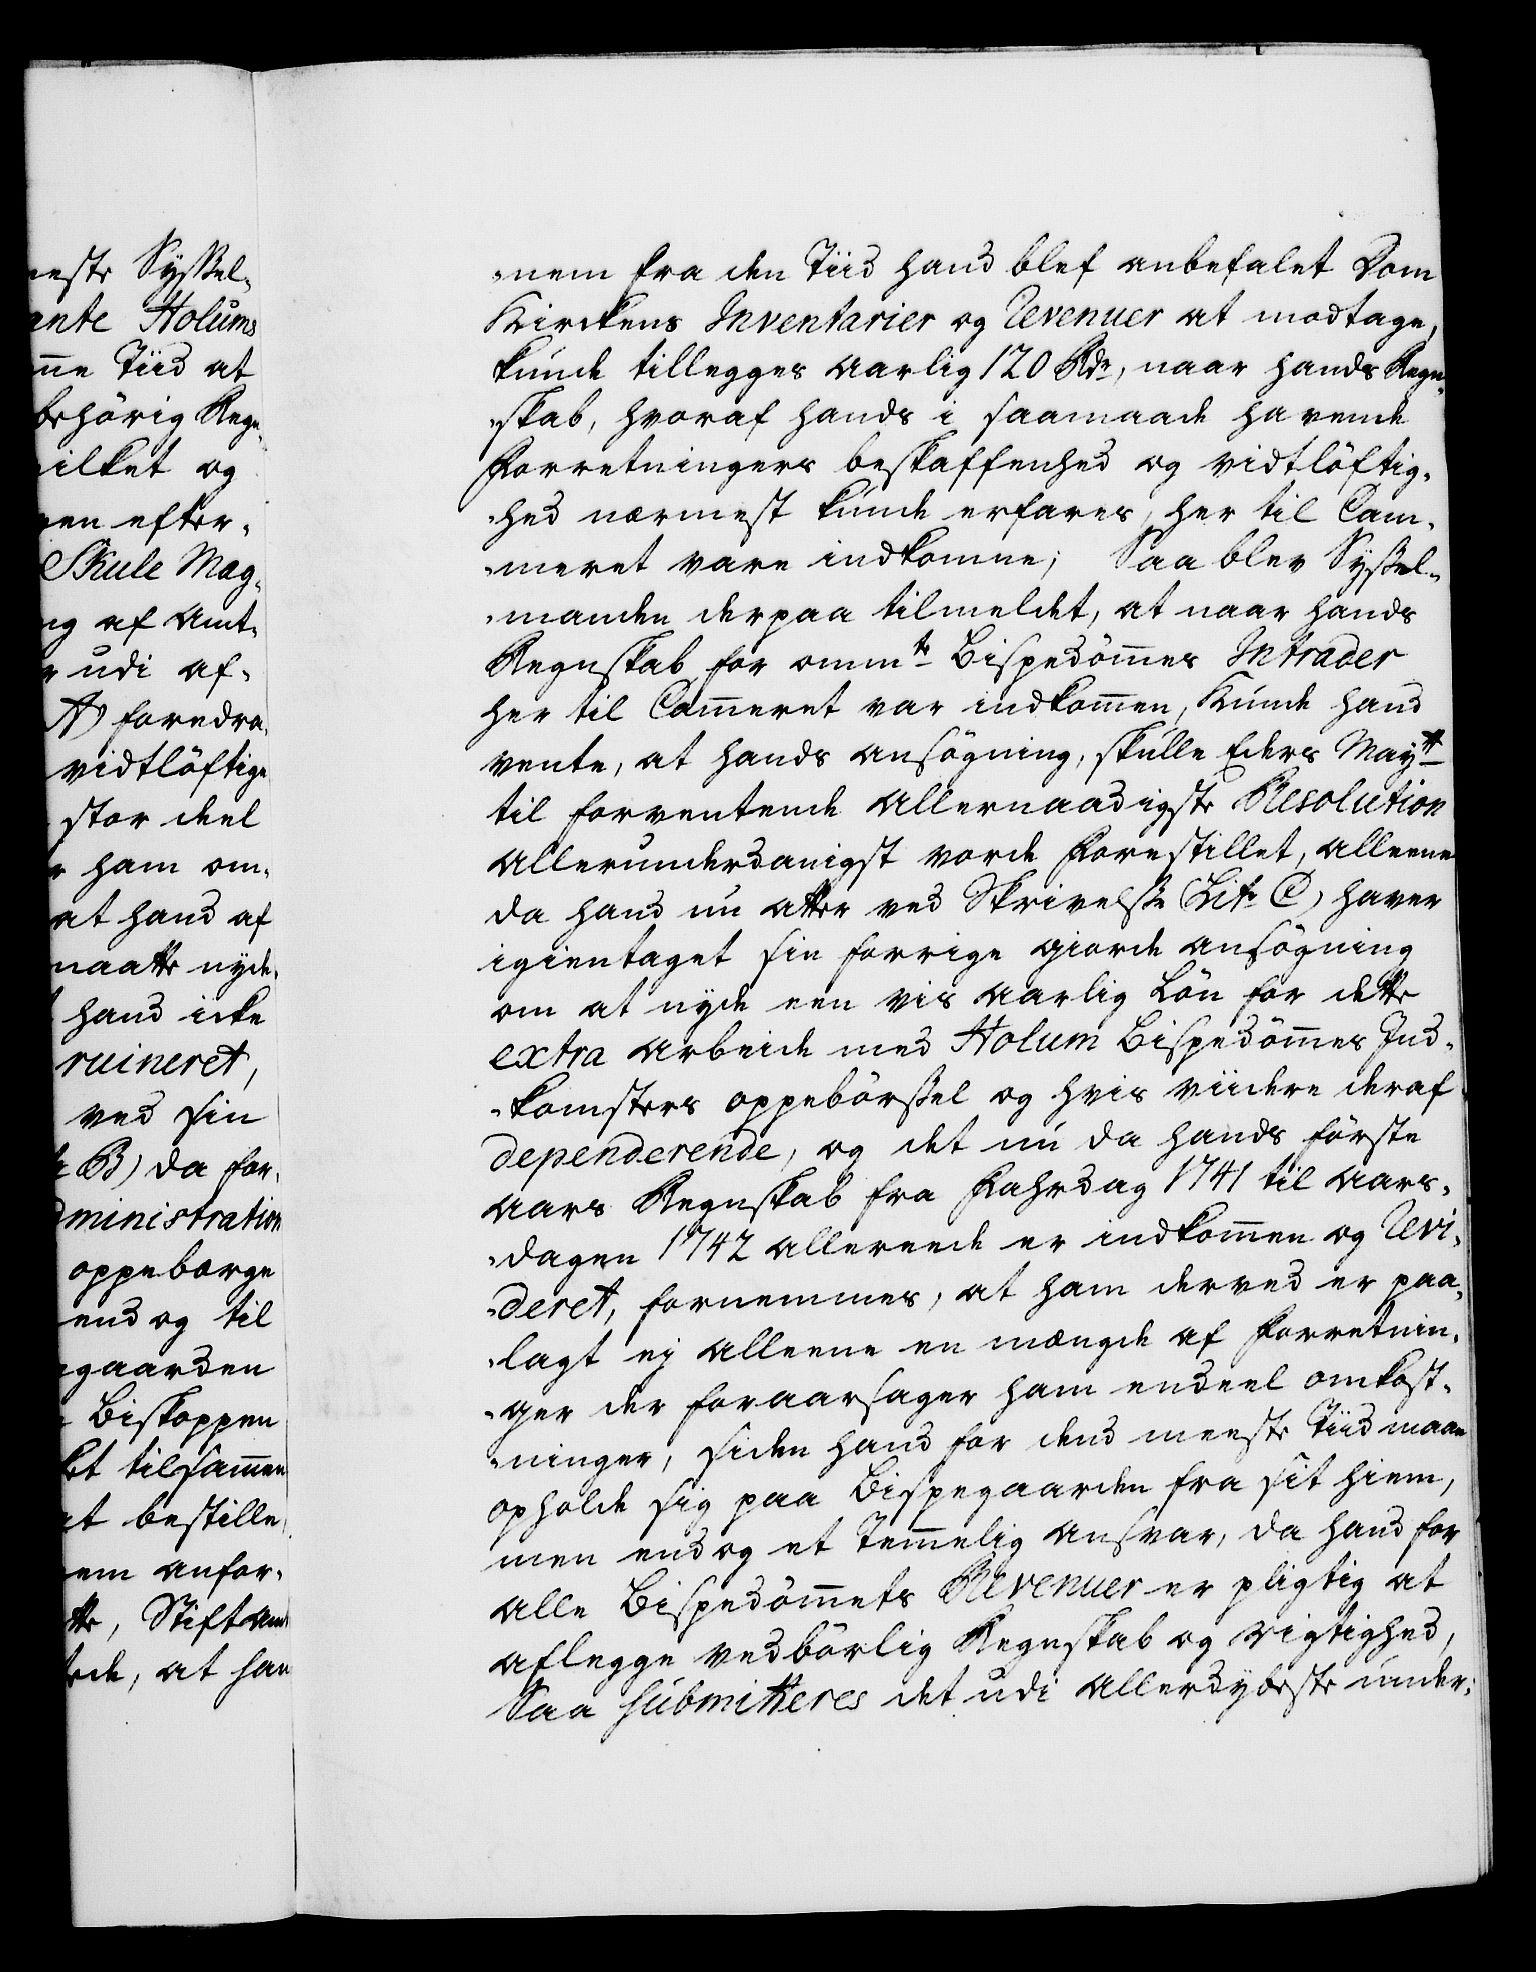 neste Syssel-
ante Holums
mne Tiid at
behörig Regn-
hvilket og
gen efter-
Skule Mag-
ng af Amt-
r udi af-
A) foredra-
vidtlöftige
stor deel
r ham om-
at hand af
maatte nyde,
hand icke
ruineret,
ved sin
B) da for-
dministration
oppebærge
end og til
egaarden
Biskoppen
et tilsammen
at bestille,
em anfor-
tte, Stiftamt
ede, at han
-nem fra den Tiid hand blef anbefalet Dom
Kirckens Inventarier og Revenuer at modtage,
kunde tillegges aarlig 120 Rdr, naar hands Regn-
-skab, hvoraf hands i saamaade havende
Forretningers beskaffenhed og vidtlöftig-
-hed nærmest kunde erfares, her til Cam-
-meret vare indkomne; Saa blev Syssel-
-manden derpaa tilmeldet, at naar hands
Regnskab for ommte Bispedömmes Intrader
her til Cammeret var indkommen, Kunde hand
vente, at hands ansögning, skulle Eders Maytt
til forventende allernaadigste Resolution
allerunderdanigst vorde Forestillet, alleene
da hand nu atter ved Skrivelse (Litr C) haver
igientaget sin forrige giorde ansögning
om at nyde een vis aarlig Lön for dette
extra arbeide med Holum Bispedömmes Ind-
-komsters oppebörssel og hvis viidere deraf
dependerende, og det nu da hands förste
aars Regnskab fra Fahrdag 1741 til aars-
-dagen 1742 allereede er indkommen og Revi-
-deret, fornemmes, at ham derved er paa-
-lagt ej alleene en mængde af Forretnin-
-ger der foraarsager ham endeel omkost-
-ninger, siden hand for dend meeste Tiid maae
opholde sig paa Bispegaarden fra sit hiem,
men end og et Temmelig ansvar, da hand for
alle Bispedömmets Revenuer er pligtig at
aflegge vedbörlig Regnskab og rigtighed,
Saa submitteres det udi allerdybeste under-